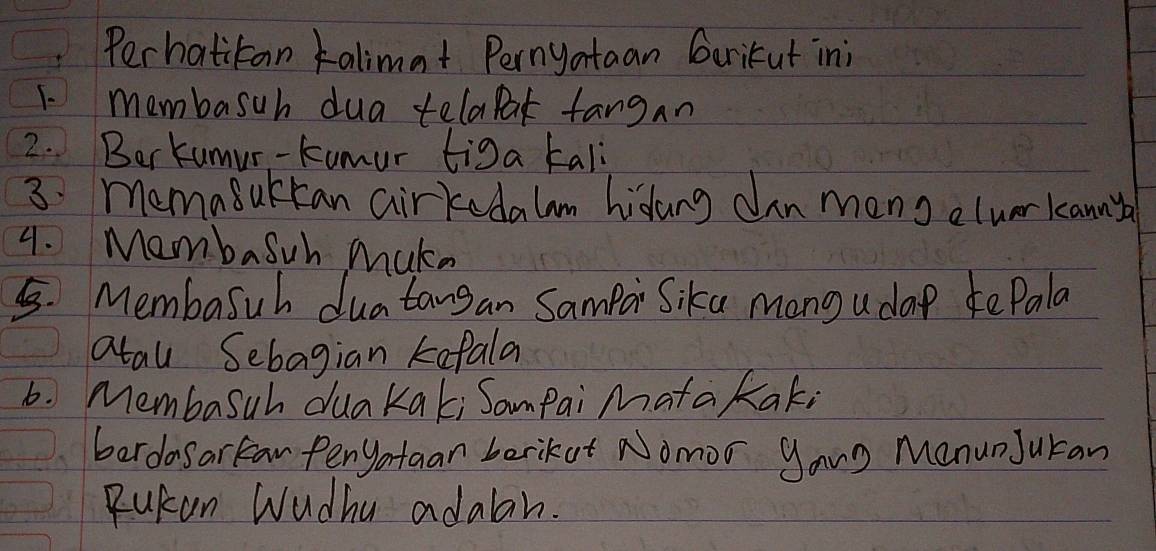 Perhatikan kalimat Pernyataan berikut ini
1. membasuh dua telapak tangan
2. Berkumur-kumur tiga kali
3. Memasukkan air kedalam hidung dan mengeluarkannya
4. Membasuh muka
5. Membasuh dua tangan Sampai Siku mengudap kepala
atau Sebagian kepala
6. Membasuh dua kaki Sampai Mata kaki
berdasarkan Penyataan berikut Nomor yang Menunjukan
Rukun Wudhu adalah.